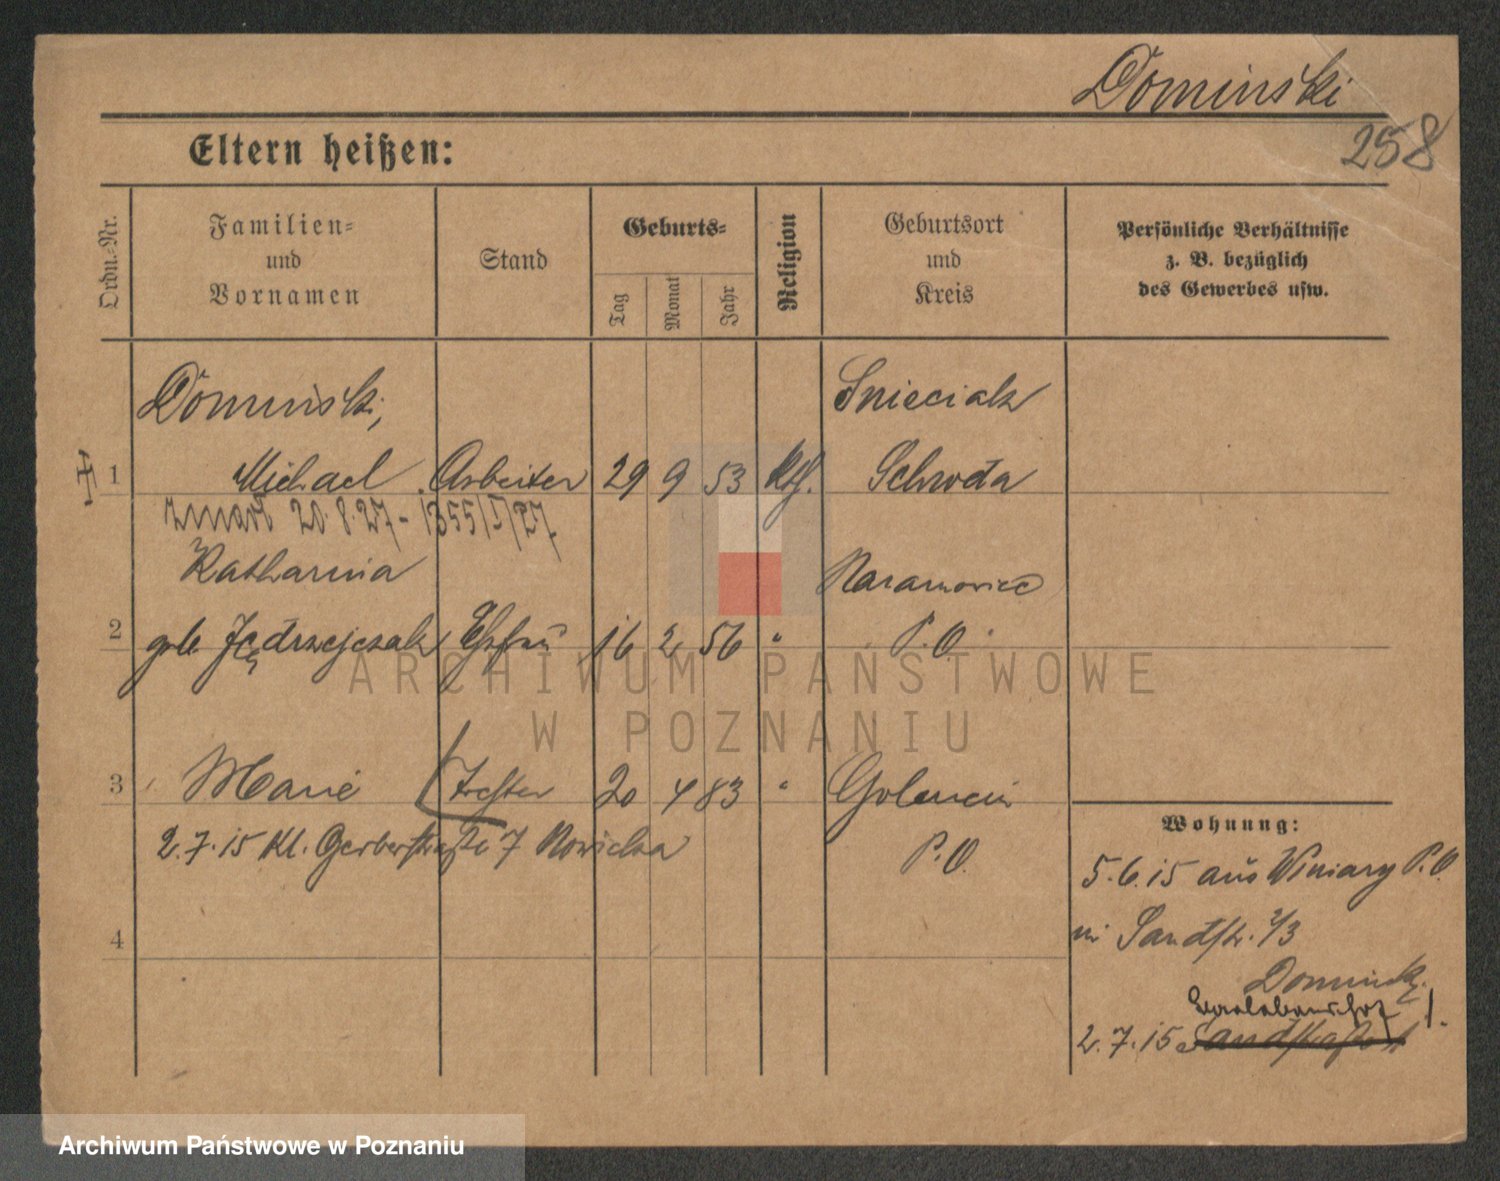 Dominski
258
Eltern heißen:
Ordn.-Nr.
Familien-
und
Vornamen
Stand
Geburts-
Tag
Monat
Jahr
Religion
Geburtsort
und
Kreis
Persönliche Verhältnisse
z. B. bezüglich
des Gewerbes usw.
Dominski,
Snieciak
1 Michael Arbeiter 29 9 53 Kth. Schroda
zmarł 20.8.27 - 1355/I/27
Katharina
Naramovice
2 gb. Jędrzejczak Ehefrau 16 2 56 " P.O.
3 Marie Tochter 20 4 83 " Golencin
2.7.15 Kl. Gerberstraße 7 Nowicka
P.O.
4
Wohnung:
5.6.15 aus Winiary P.O.
in Sandstr. 2/3
Dominski
2.7.15 Sandstraße
ARCHIWUM PAŃSTWOWE
W POZNANIU
Archiwum Państwowe w Poznaniu